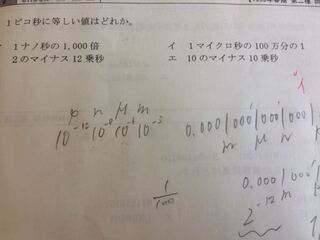 1ピコ秒に等しい値はどれか。
1ナノ秒の1,000倍 イ 1マイクロ秒の100万分の1
2のマイナス12乗秒 エ 10のマイナス10乗秒
イ
p n μ m
10⁻¹² 10⁻⁹ 10⁻⁶ 10⁻³
0.000 | 000 | 000 | 00
m μ n
1/100
0.000 | 000
2⁻¹² m